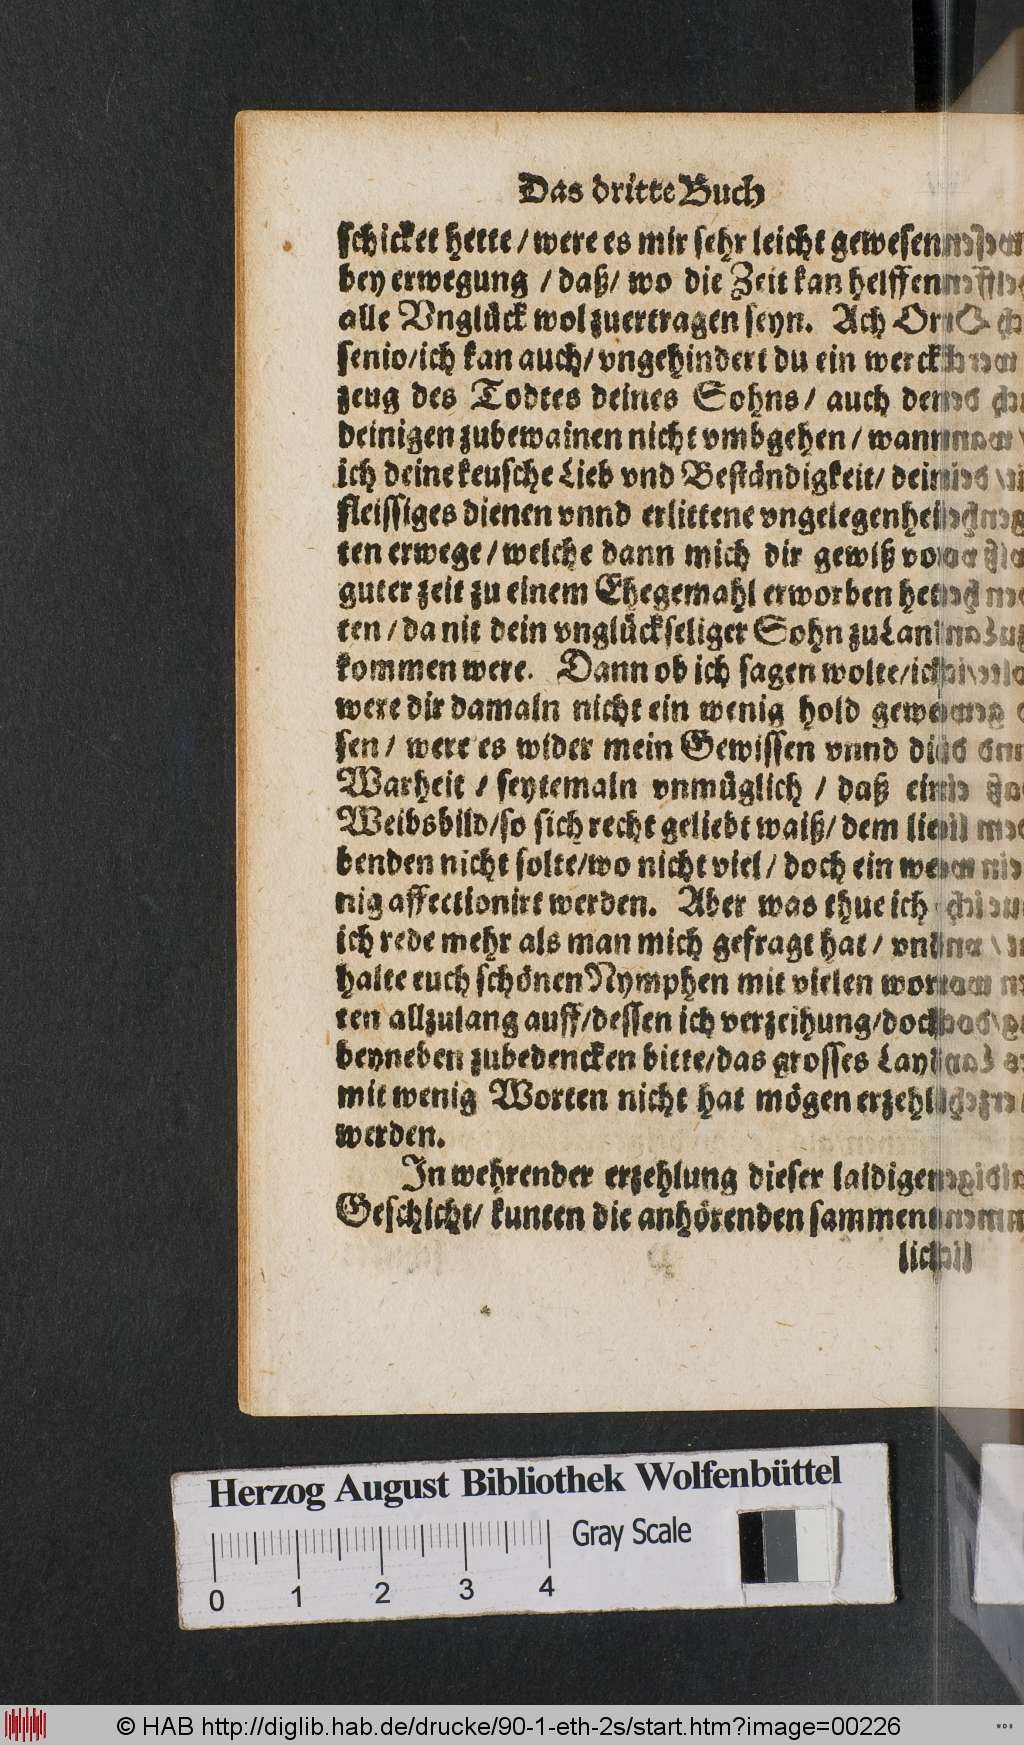 Das dritte Buch
schicket hette / were es mir sehr leicht gewesen
bey erwegung / daß / wo die Zeit kan helffen
alle Vnglück wol zuertragen seyn. Ach Or-
senio / ich kan auch / vngehindert du ein werck
zeug des Todtes deines Sohns / auch den
deinigen zubewainen nicht vmbgehen / wann
ich deine keusche Lieb vnd Beständigkeit / dein
fleissiges dienen vnnd erlittene vngelegenhei
ten erwege / welche dann mich dir gewiß vor
guter zeit zu einem Ehegemahl erworben het
ten / da nit dein vnglückseliger Sohn zu Lan
kommen were. Dann ob ich sagen wolte / ich
were dir damaln nicht ein wenig hold gewe
sen / were es wider mein Gewissen vnnd die
Warheit / seytemaln vnmüglich / daß ein
Weibsbild / so sich recht geliebt waiß / dem lie
benden nicht solte / wo nicht viel / doch ein we
nig affectionirt werden. Aber was thue ich
ich rede mehr als man mich gefragt hat / vnd
halte euch schönen Nymphen mit vielen wor
ten allzulang auff / dessen ich verzeihung / doch
beyneben zubedencken bitte / das grosses Layd
mit wenig Worten nicht hat mögen erzehlt
werden.
In wehrender erzehlung dieser laidigen
Geschicht / kunten die anhörenden samment
lich
Herzog August Bibliothek Wolfenbüttel
Gray Scale
0 1 2 3 4
© HAB http://diglib.hab.de/drucke/90-1-eth-2s/start.htm?image=00226